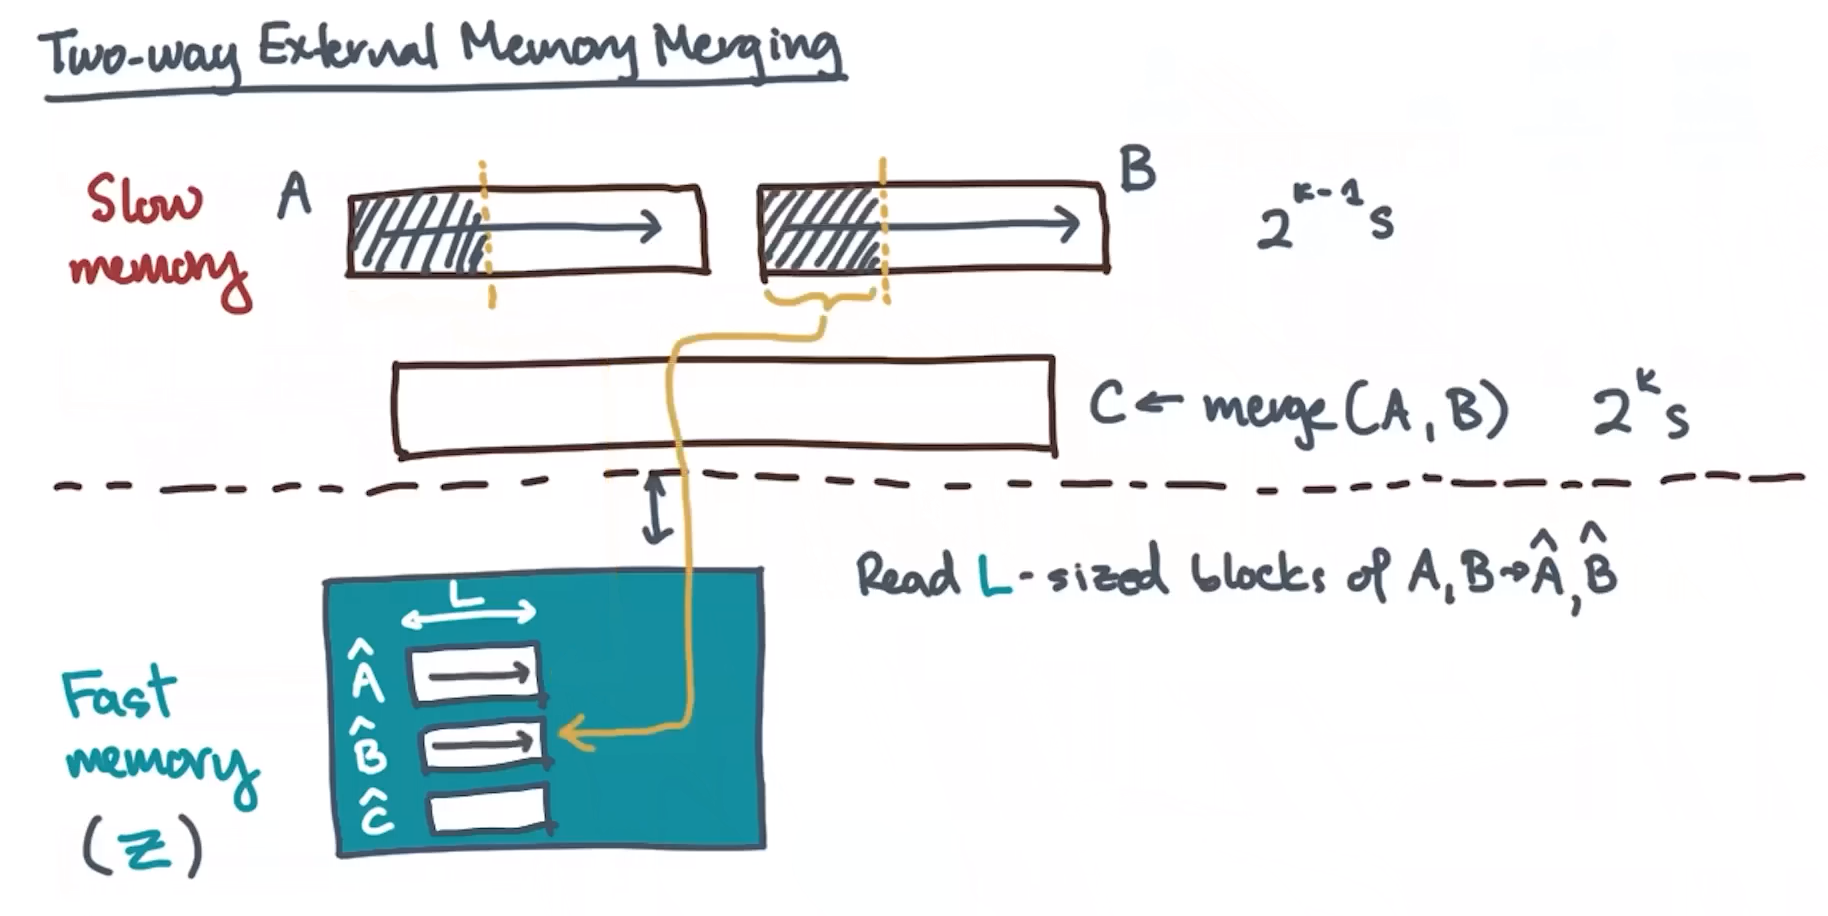 Two-way External Memory Merging
Slow memory
A
B
2^{k-1}s
C ← merge(A, B)
2^k s
Read L-sized blocks of A, B → Â, B̂
Fast memory
(Z)
L
Â
B̂
Ĉ